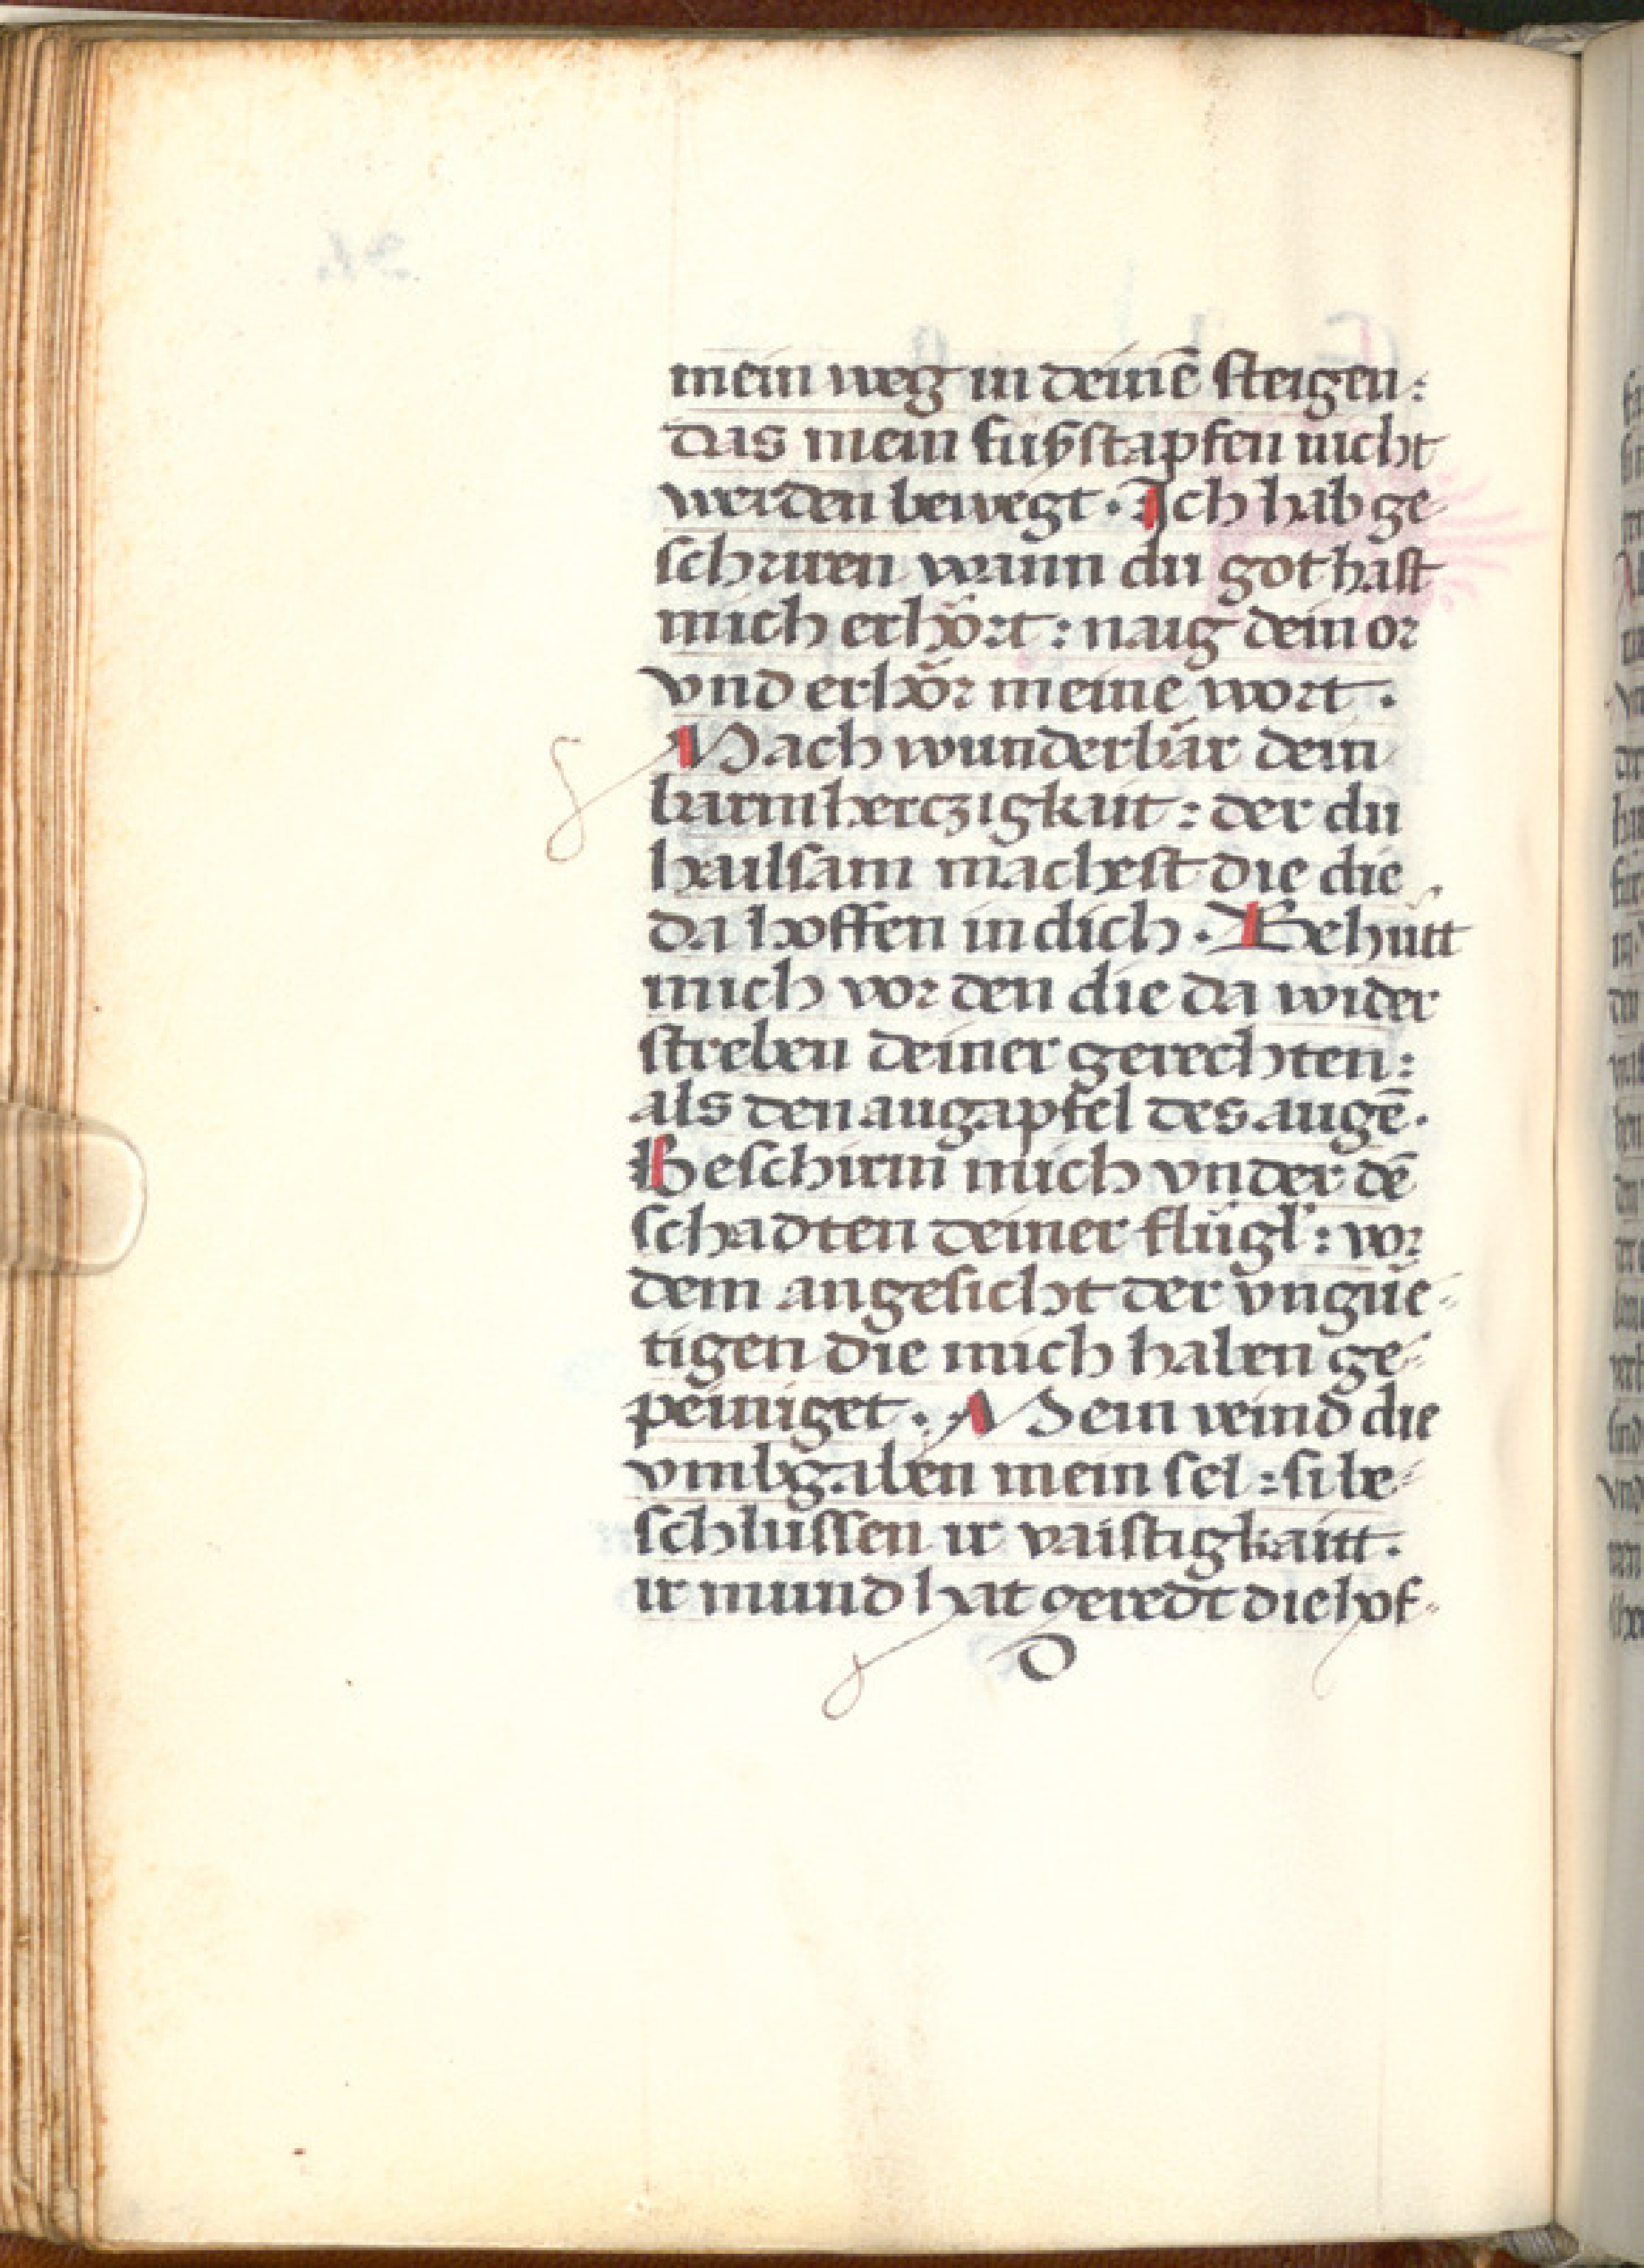 mein weg in deinē steigen:
das mein fuẞstapfen nicht
werden bewegt · Ich hab ge
schriren wann du got hast
mich erhört : naig dein or
vnd erhör meine wort ·
Mach wunderbar dein
barmherczigkait : der du
hailsam machest die die
da hoffen in dich · Behütt
mich vor den die da wider
streben deiner gerechten :
als den augapfel des augē ·
Beschirm mich vnder dē
schadten deiner flügl : vor
dem angesicht der vngüe-
tigen die mich haben ge-
peiniget · Mein veind die
vmbgaben mein sel : si be-
schlussen ir vaistigkaitt ·
ir mund hat geredt die hof-